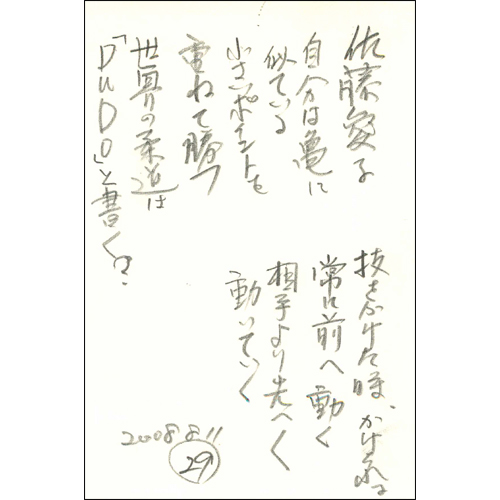 佐藤愛子
自分は亀に
似ている
小さいポイントを
重ねて勝つ
世界の柔道は
「DUDO」と書く?
技をかけた時、かけられる
常に前へ動く
相手より先へ先へ
動いていく
2008.8.11
29